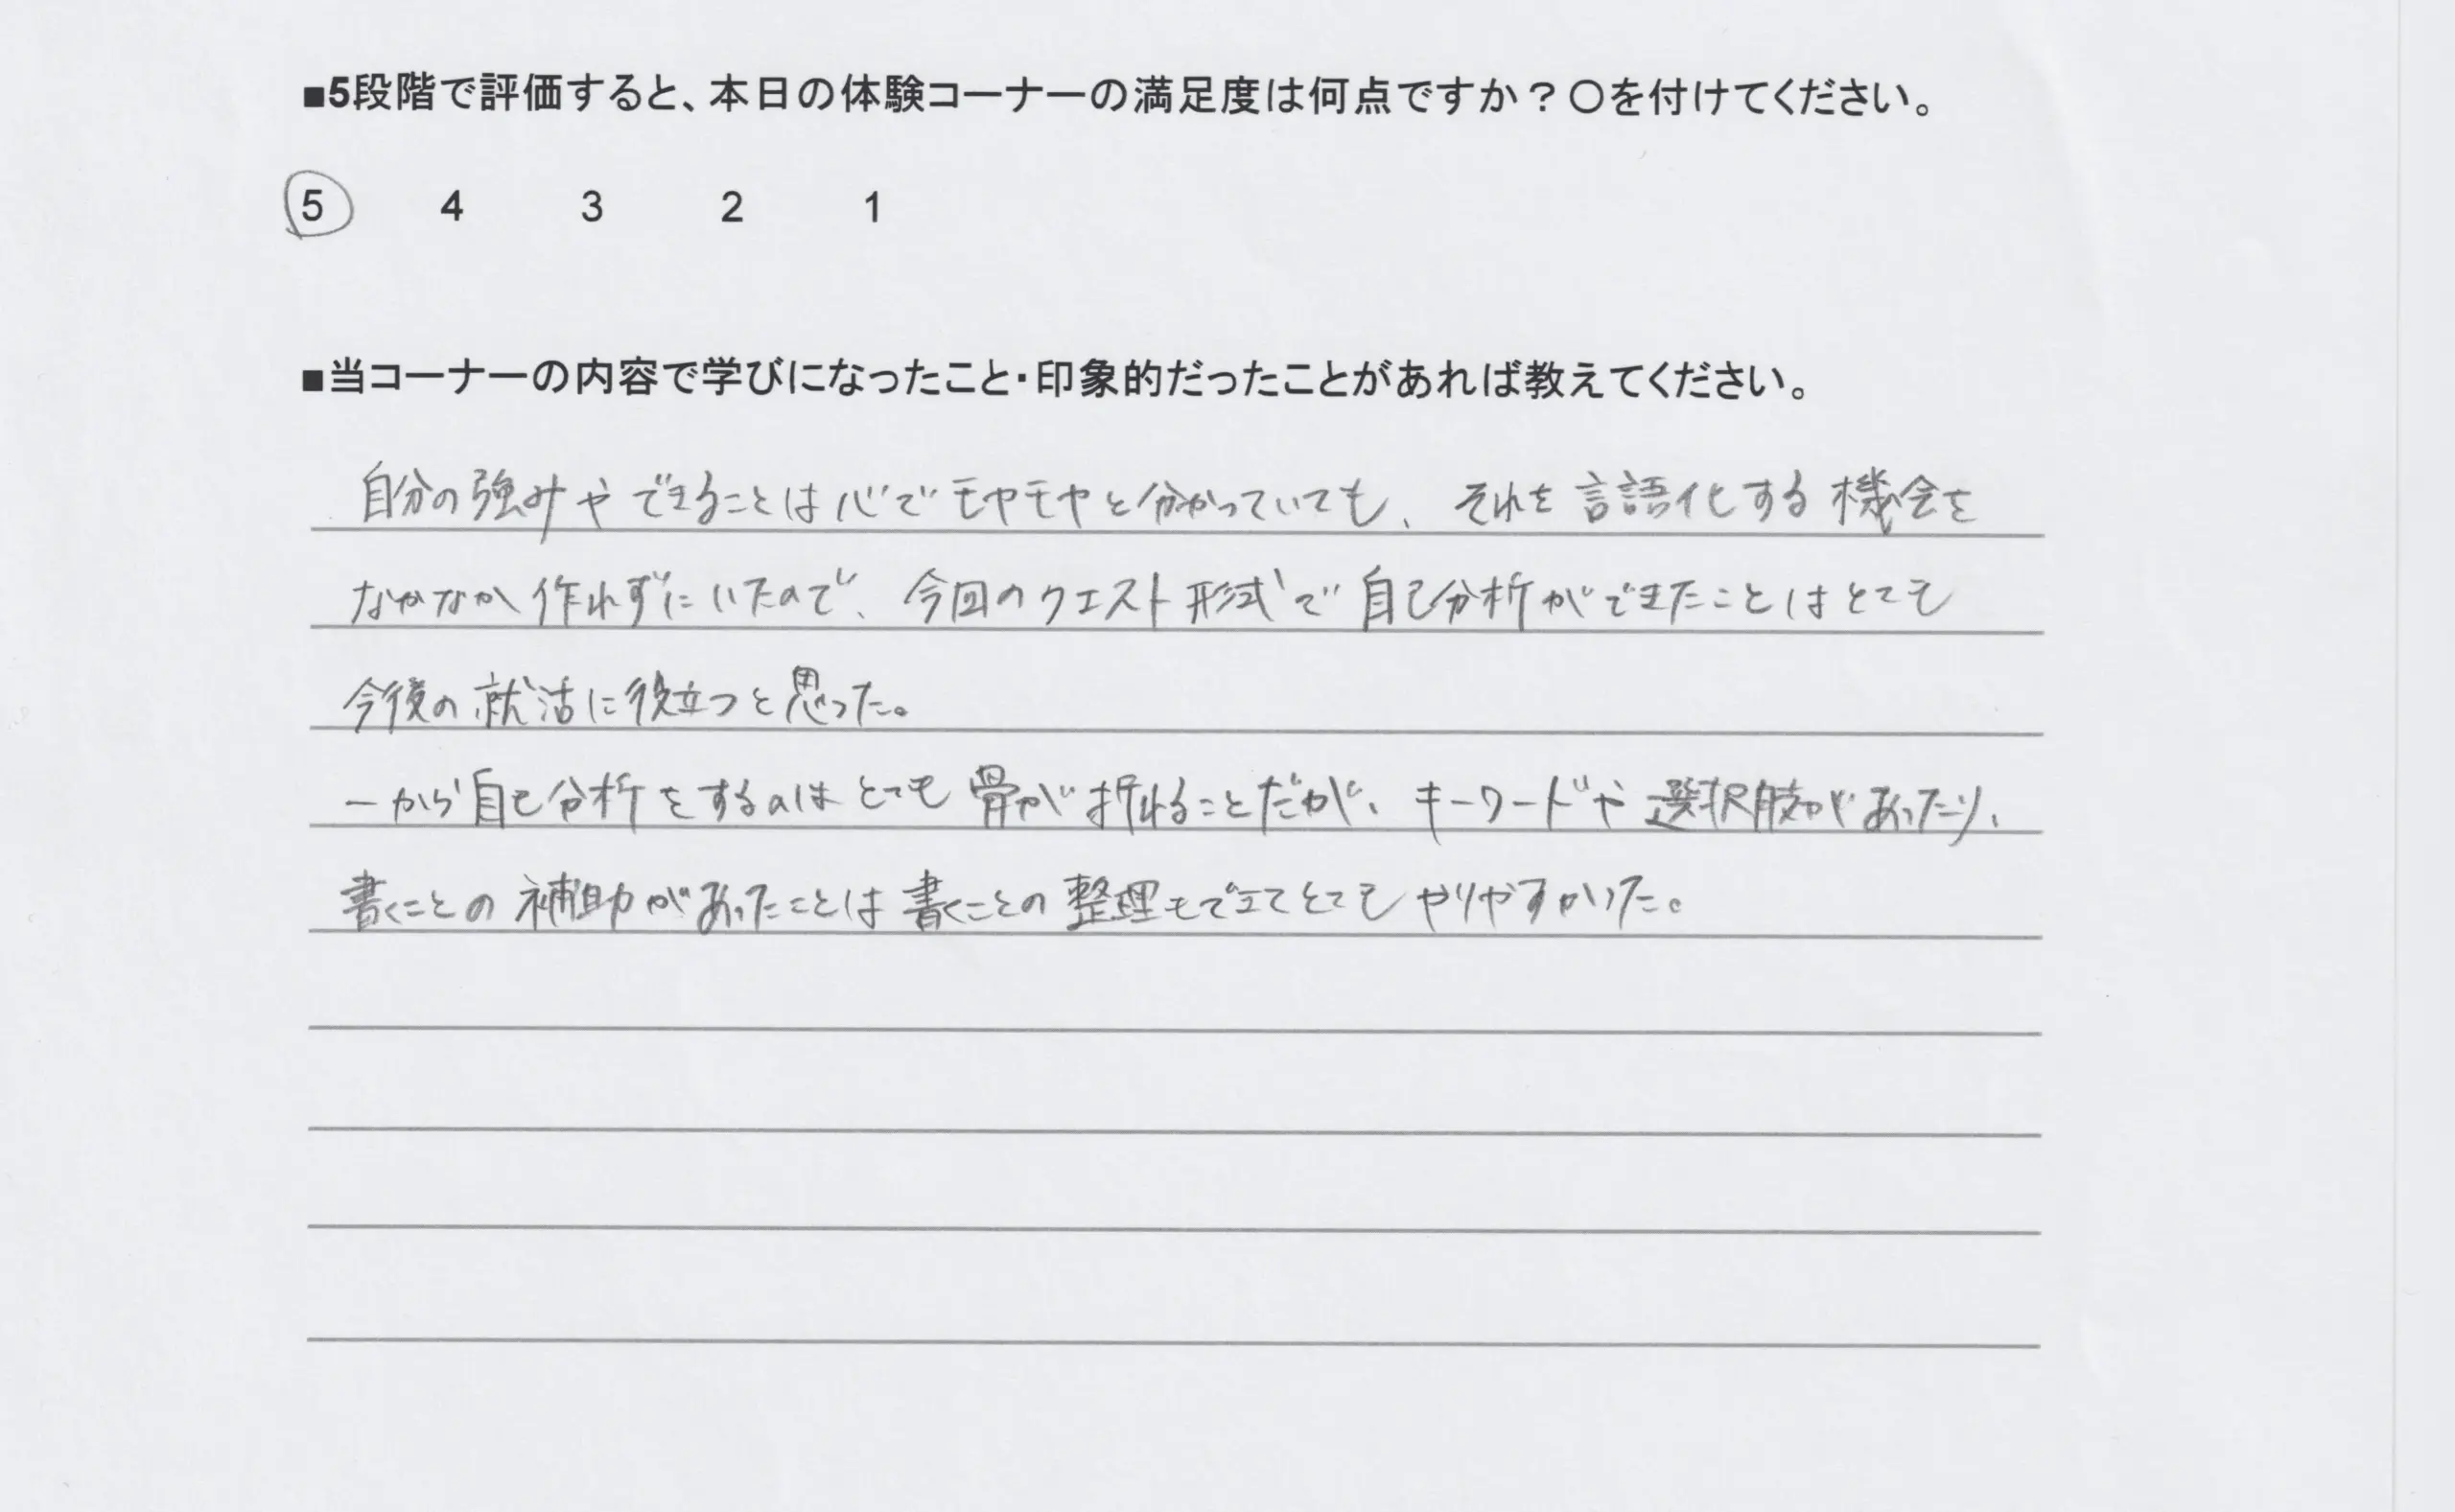 ■5段階で評価すると、本日の体験コーナーの満足度は何点ですか？〇を付けてください。
5 4 3 2 1
■当コーナーの内容で学びになったこと・印象的だったことがあれば教えてください。
自分の強みやできることは心でモヤモヤと分かっていても、それを言語化する機会を
なかなか作れずにいたので、今回のクエスト形式で自己分析ができたことはとても
今後の就活に役立つと思った。
一から自己分析をするのはとても骨が折れることだが、キーワードや選択肢があったり、
書くことの補助があったことは書くことの整理もできてとてもやりやすかった。